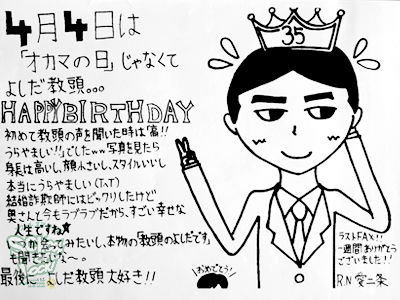 4月4日は
「オカマの日」じゃなくて
よしだ教頭。。。
HAPPY BIRTHDAY
初めて教頭の声を聞いた時は「高!!
うらやましい!!」でしたww写真を見たら
身長は高いし、顔小さいし、スタイルいいし
本当にうらやましい(T^T)
結婚詐欺師にはビックリしたけど
奥さんと今もラブラブだから、すごい幸せな
人生ですね☆
会ってみたいし、本物の「教頭のよしだです」
も聞きたいな〜。
最後に
した教頭大好き!!
35
おめでとう!
ラストFAX!!
一週間ありがとう
ございました!!
RN 愛二条